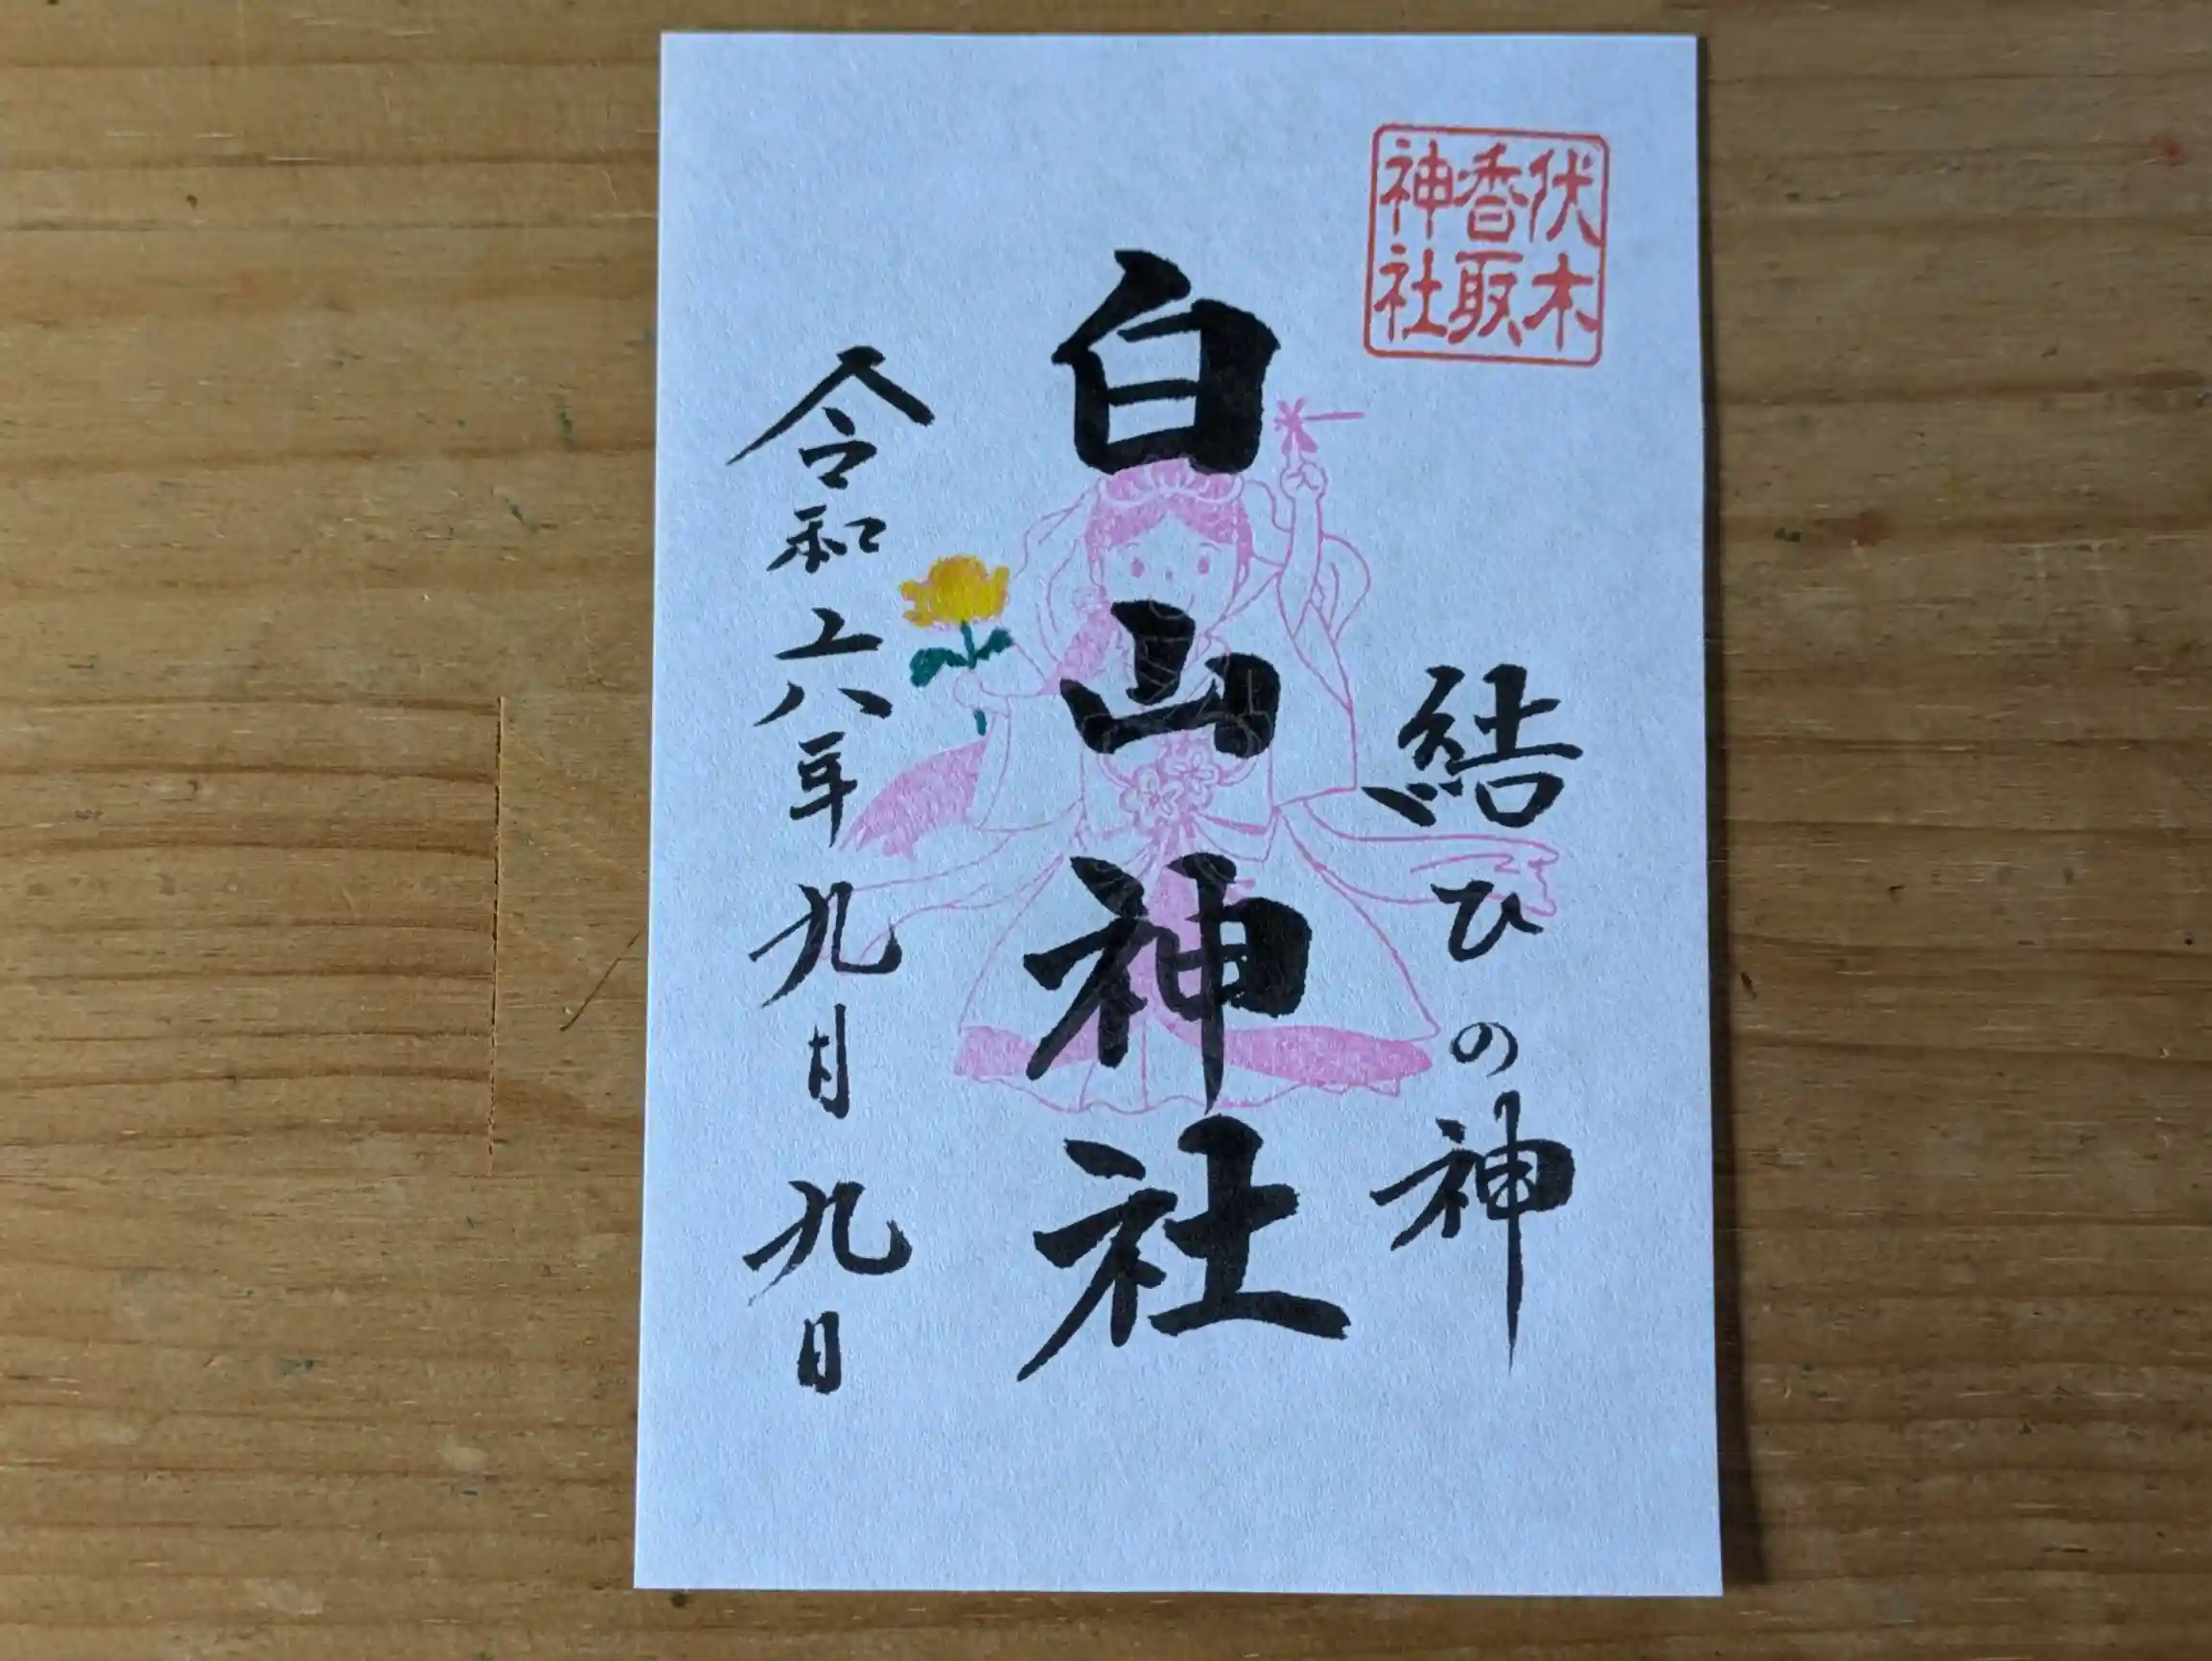 伏木
香取
神社
結びの神
白山神社
令和六年九月九日